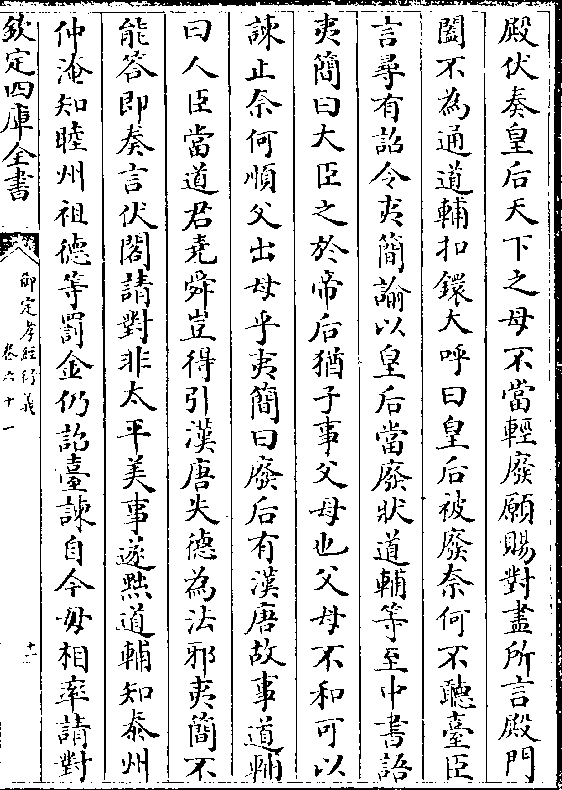 殿伏奏皇后天下之母不當輕廢願賜對盡所言殿門
闔不為通道輔扣鐶大呼曰皇后被廢奈何不聽臺臣
言尋有詔令夷簡諭以皇后當廢狀道輔等至中書語
夷簡曰大臣之於帝后猶子事父母也父母不和可以
諫止奈何順父出母乎夷簡曰廢后有漢唐故事道輔
曰人臣當道君堯舜豈得引漢唐失德為法邪夷簡不
能答即奏言伏閣請對非太平美事遂黜道輔知泰州
仲淹知睦州祖德等罰金仍詔臺諫自今毋相率請對
欽定四庫全書
御定孝經衍義
卷六十一
十二